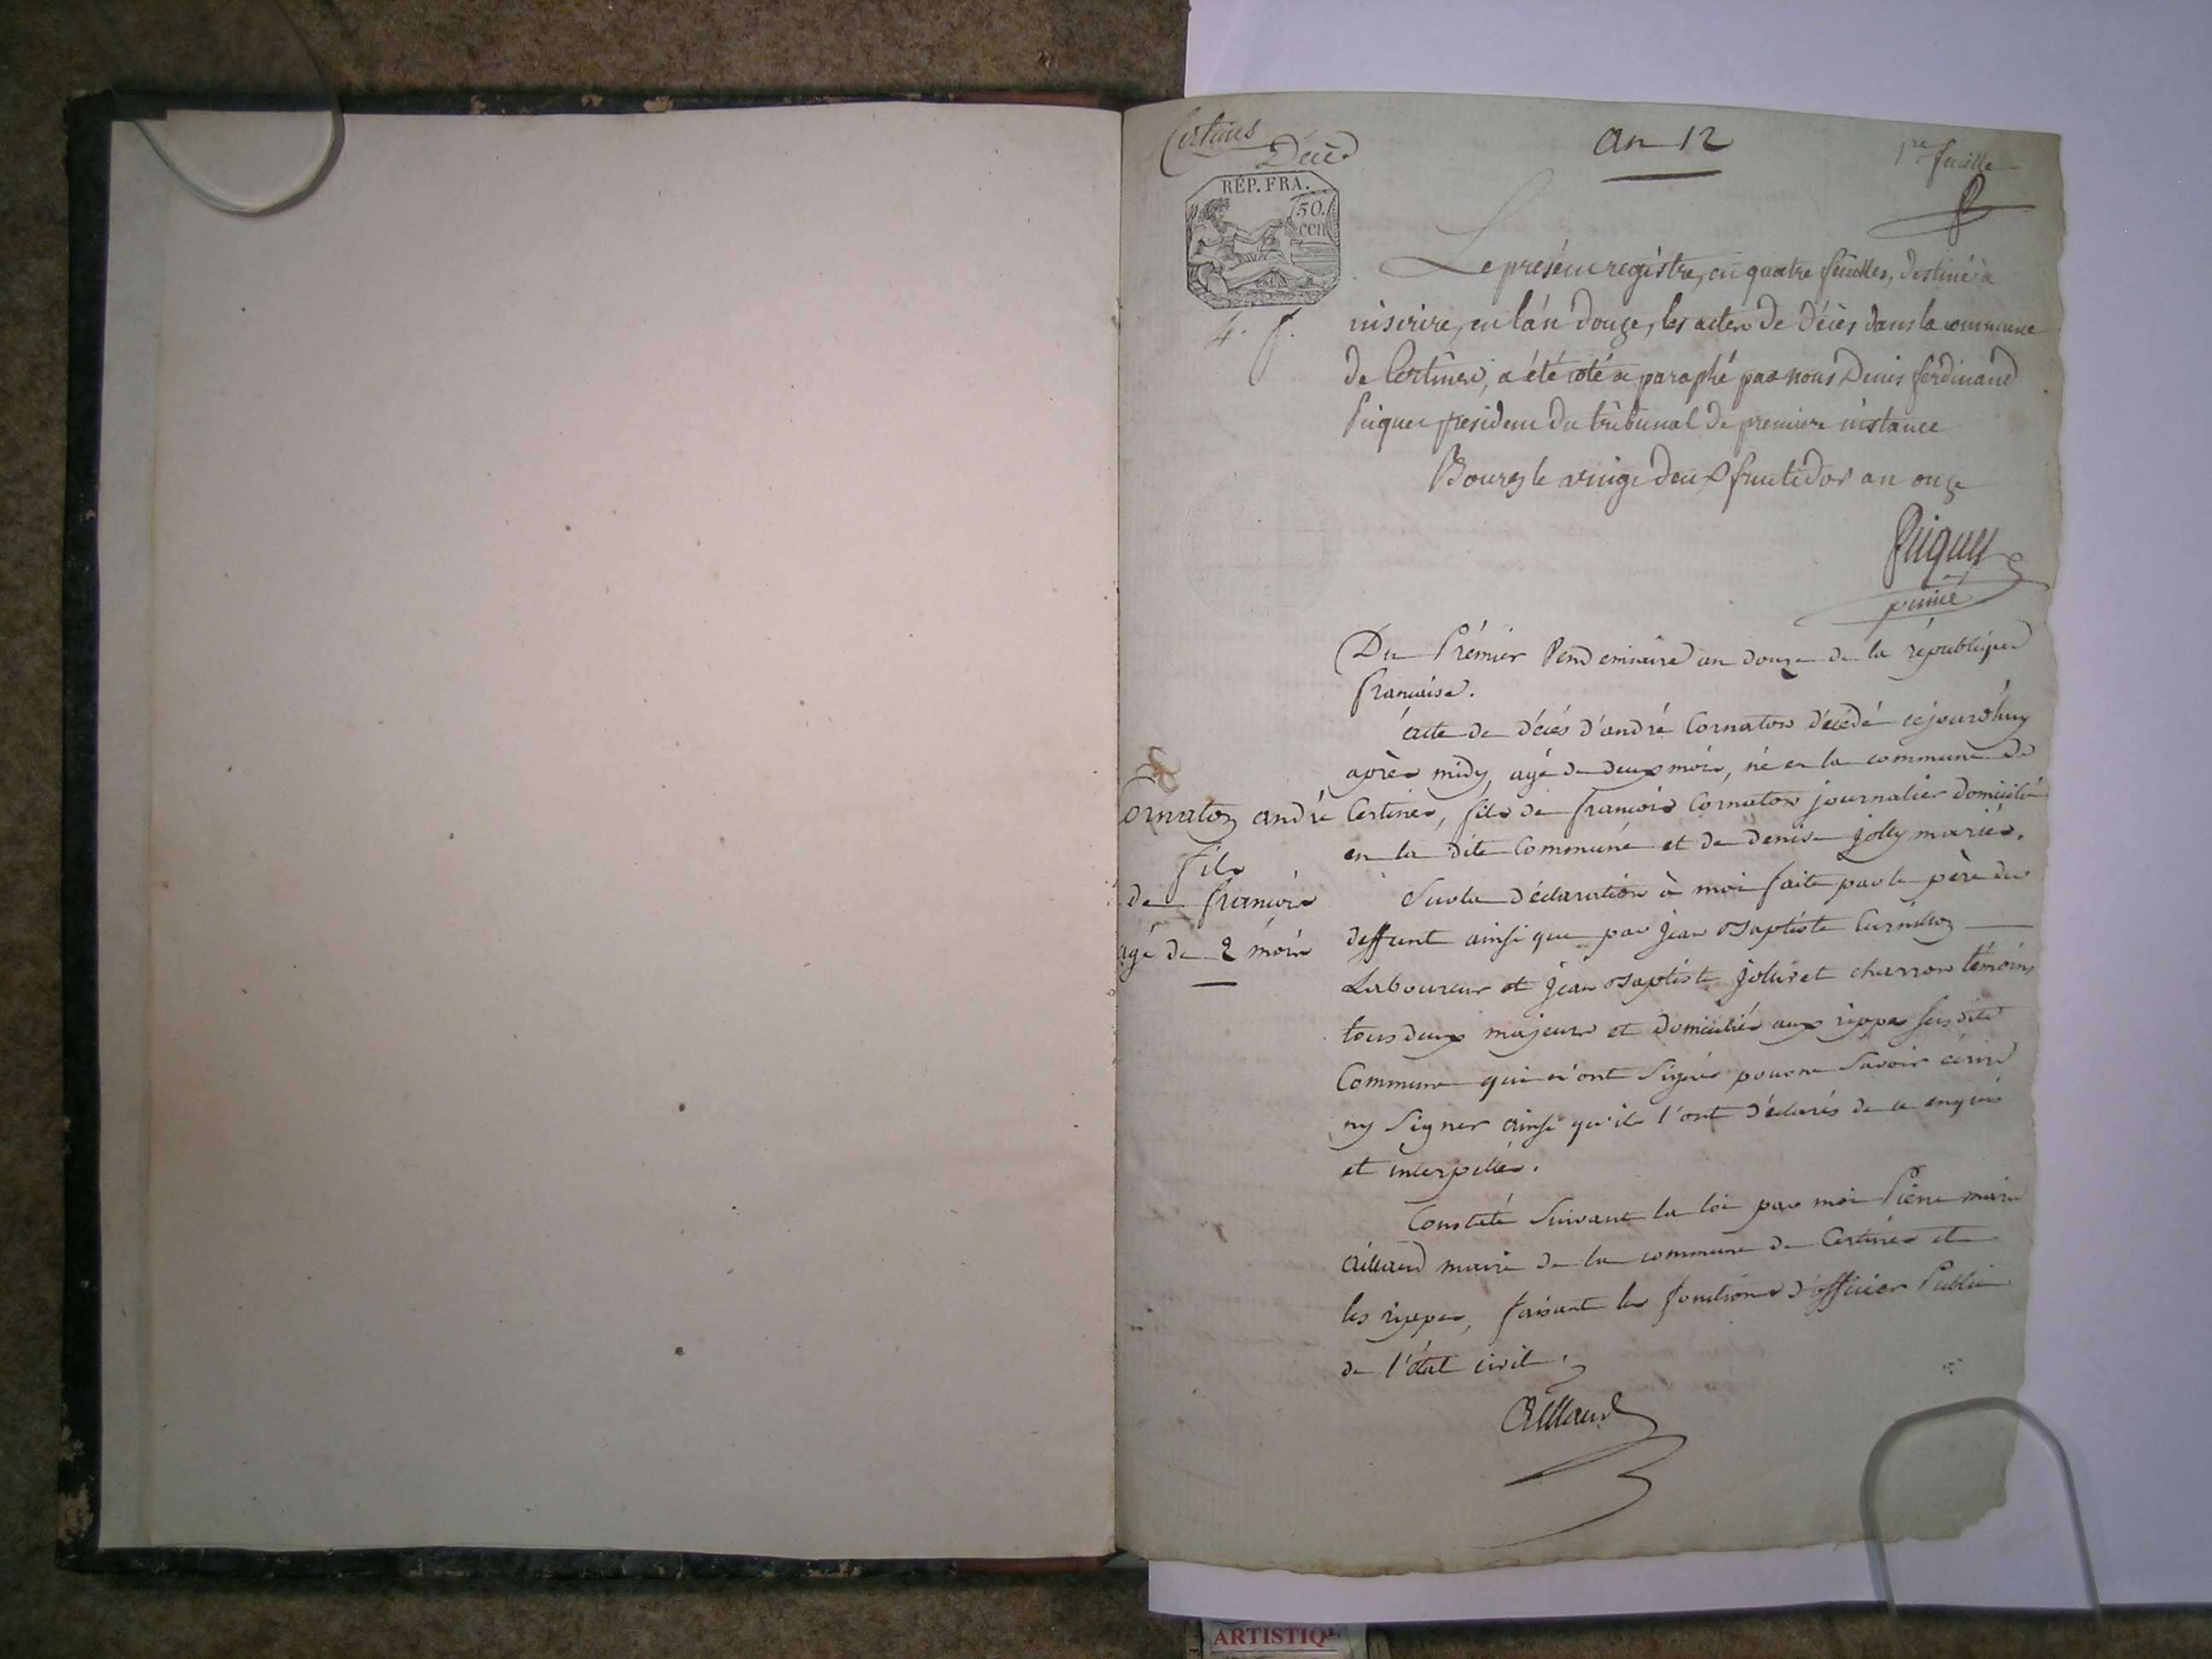 Certines
Décès
an 12
1re feuille
RÉP. FRA.
50.
cen
4. f.
Le présent registre, en quatre feuilles, destiné à
inscrire, en l'an douze, les actes de décès dans la commune
de Certines, a été coté & paraphé par nous Denis ferdinand
Piquet président du tribunal de premiere instance
Bourg le vingt deux fructidor an onze
Piquet
Du Prémier Vendemiaire an douze de la république
francaise.
acte de décés d'andré Cornaton décédé cejourd'huy
après midy, agé de deux mois, né en la commune de
Certines, fils de francois Cornaton journalier domicilié
en la dite Commune et de denise jolly mariés.
ornaton andré
fils
de francois
agé de 2 mois
Sur la déclaration à moi faite par le père du
deffunt ainsi que par jean Baptiste Curnillon
Laboureur et jean Baptiste jolivet charron témoins
tous deux majeurs et domiciliés aux rippes susdite
Commune qui n'ont signés pour ne savoir écrire
ny signer ainsi qu'ils l'ont déclarés de ce enquis
et interpellés.
Constaté suivant la loi par moi Pierre marie
Aillaud maire de la commune de Certines et
les rippes, faisant les fonctions d'officier Public
de l'état civil.
Aillaud
ARTISTIQ